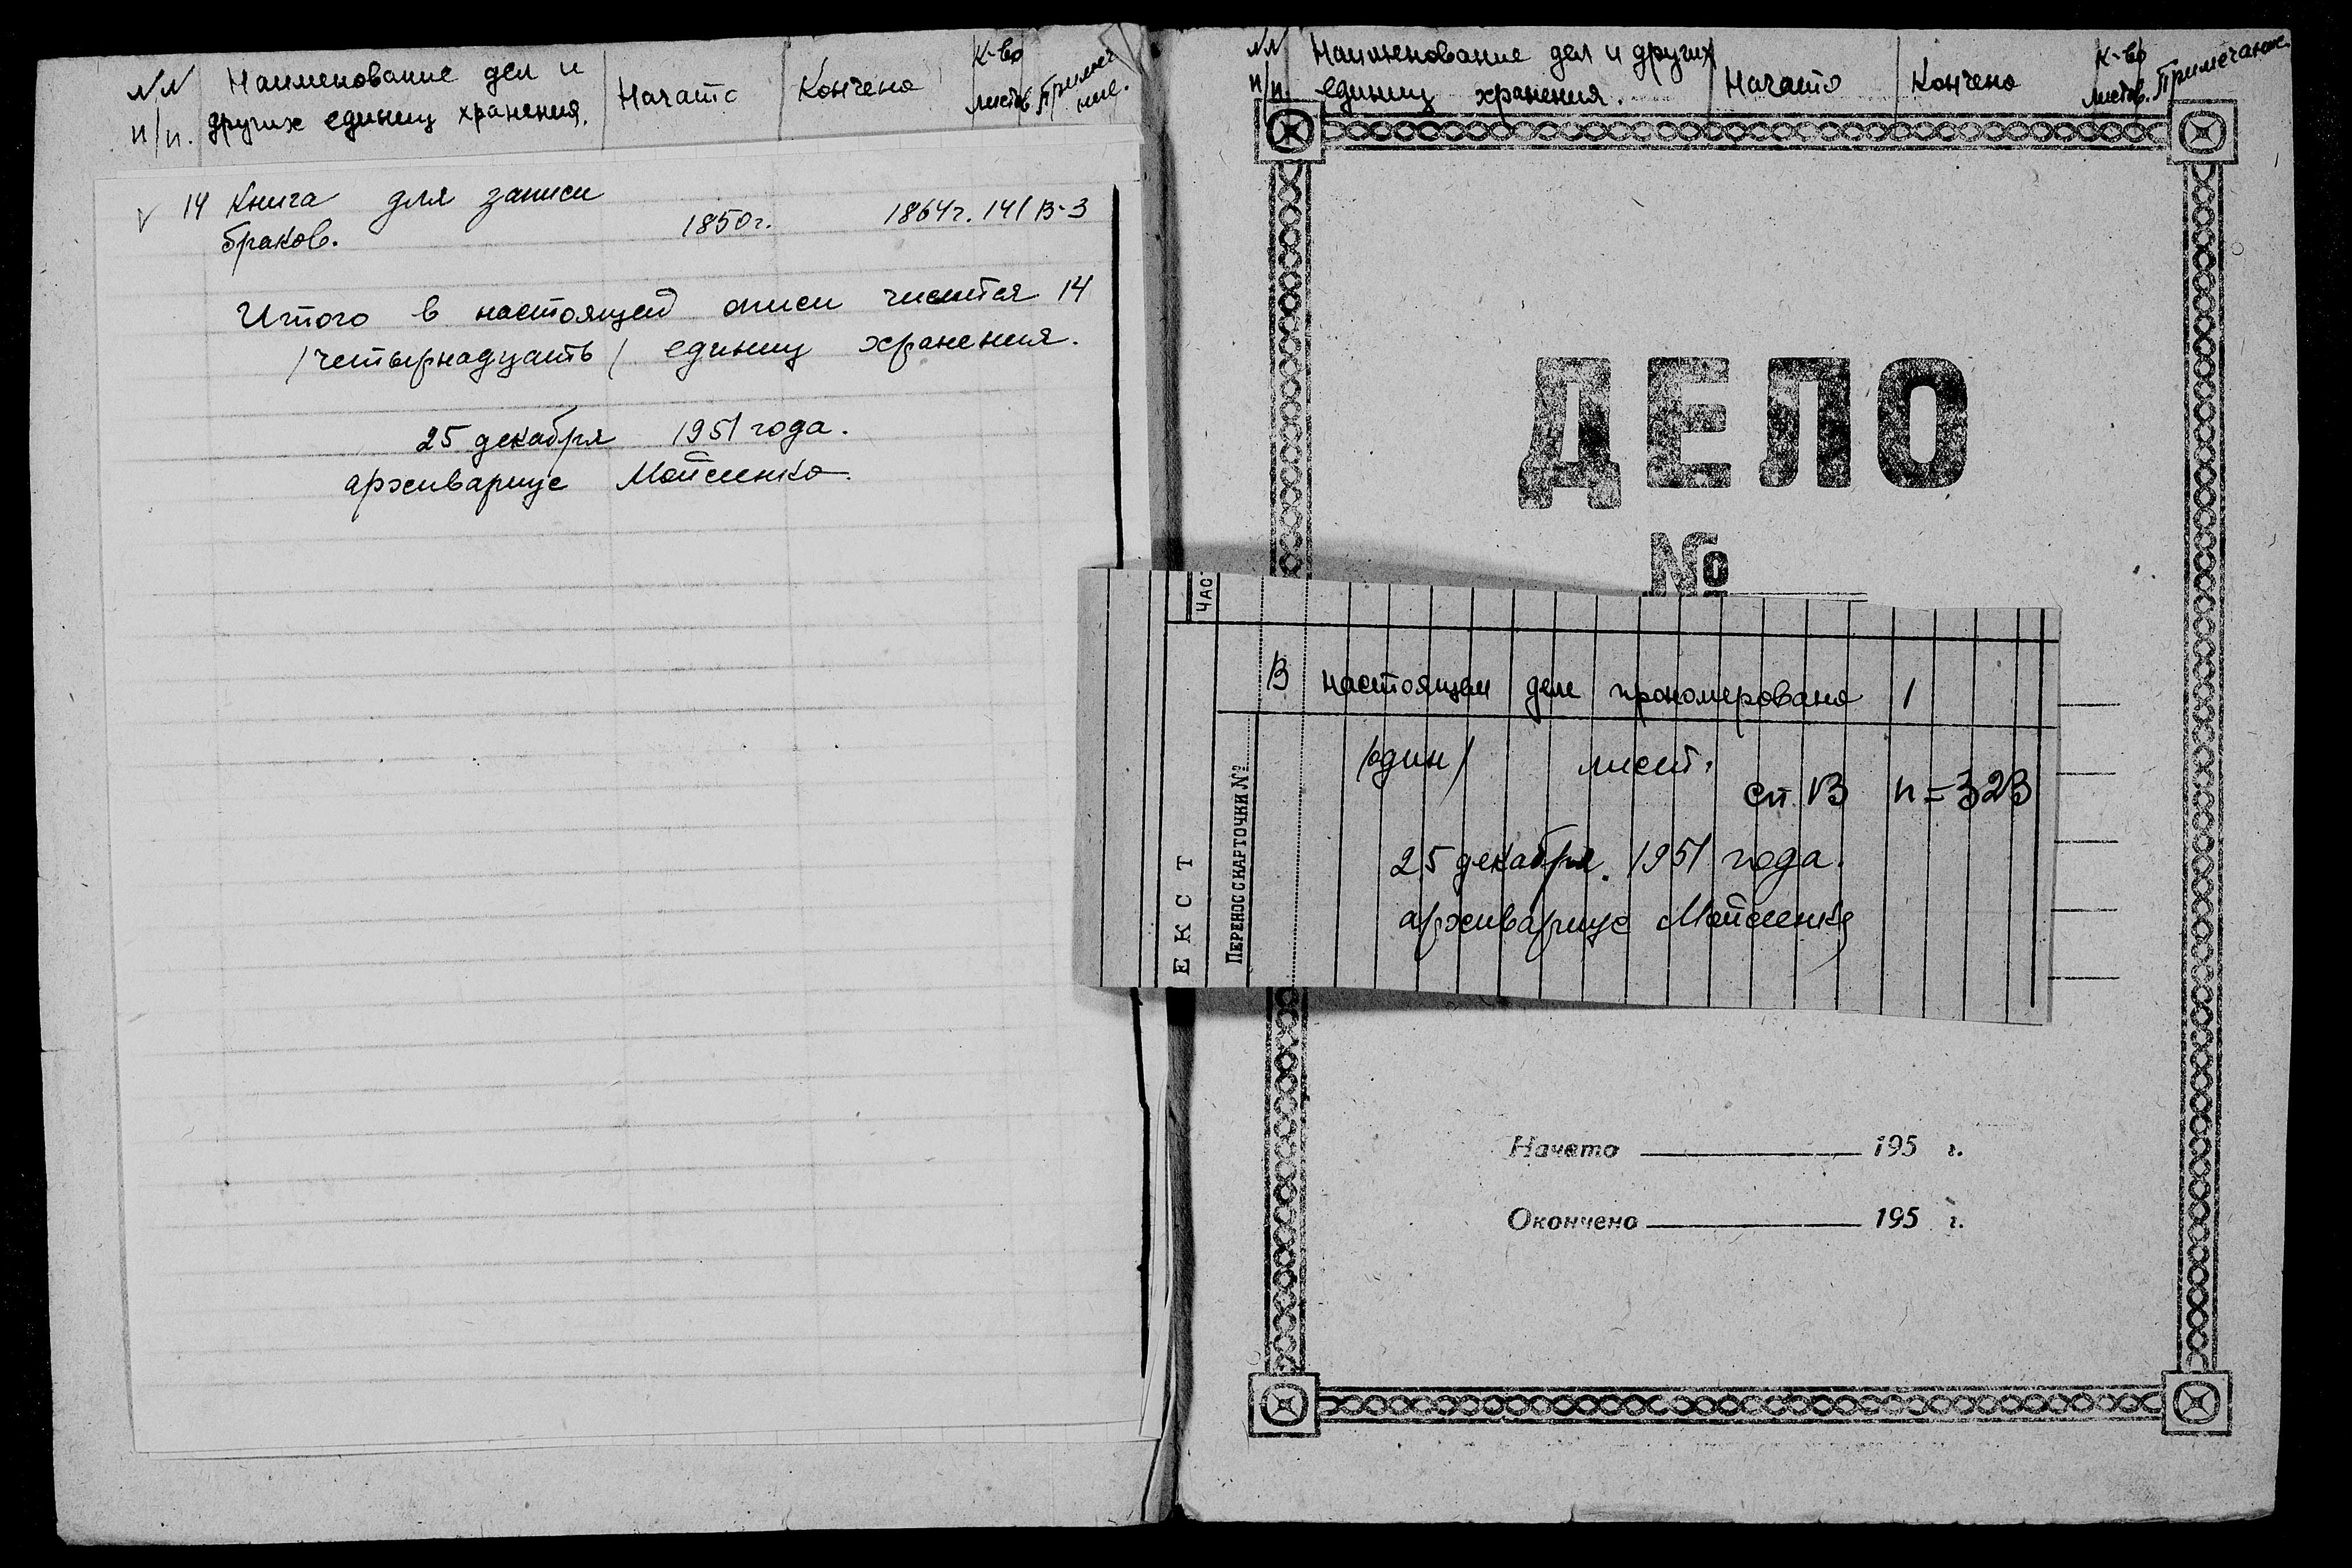 NN п/п.
Наименование дел и других единиц хранения.
Начато
Кончено
К-во листов
Примеча ние.
14 Книга для записи браков. 1850г. 1864г. 141 В-3
Итого в настоящей описи числится 14
/четырнадцать/ единиц хранения.
25 декабря 1951 года.
архивариус Мойсеенко.
NN п/п.
Наименование дел и других единиц хранения.
Начато
Кончено
К-во листов.
Примечание.
ДЕЛО
№
ЧАС
ЕКСТ
ПЕРЕНОС С КАРТОЧКИ №
В настоящем деле пронумеровано 1
/один/ лист.
сп. В n=323
25 декабря. 1951 года.
архивариус Мойсеенко
Начато 195 г.
Окончено 195 г.